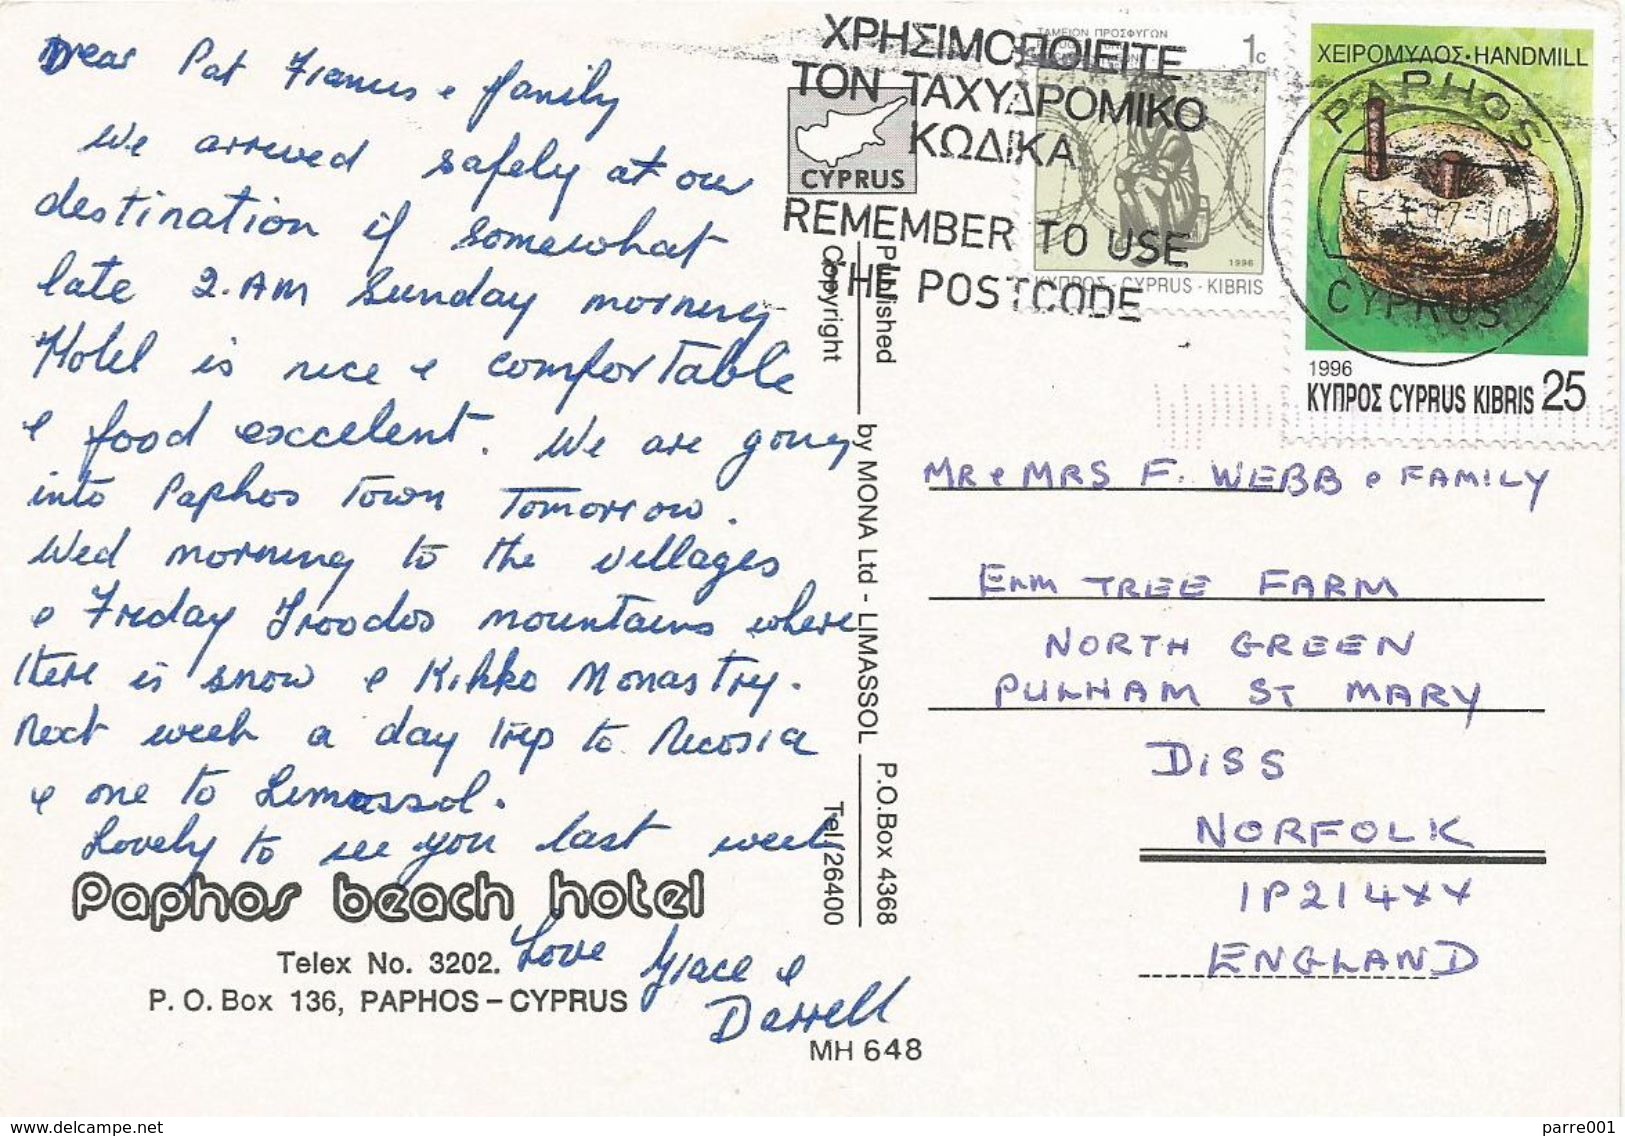 Dear Pat Francis & family
We arrived safely at our
destination if somewhat
late 2.AM Sunday morning
Hotel is nice & comfortable
& food exccelent. We are going
into Paphos Town Tomorrow.
Wed morning to the villages
& Friday Troodos mountains where
there is snow & Kikko Monastry.
Next week a day trip to Nicosia
& one to Limassol.
Lovely to see you last week
Paphos beach hotel
Love Grace &
Darrell
Telex No. 3202.
P.O. Box 136, PAPHOS – CYPRUS
MH 648
Published by MONA Ltd - LIMASSOL P.O.Box 4368
Copyright Tel. 26400
CYPRUS
ΧΡΗΣΙΜΟΠΟΙΕΙΤΕ
ΤΟΝ ΤΑΧΥΔΡΟΜΙΚΟ
ΚΩΔΙΚΑ
REMEMBER TO USE
THE POSTCODE
ΤΑΜΕΙΟΝ ΠΡΟΣΦΥΓΩΝ
1c
1996
ΚΥΠΡΟΣ - CYPRUS - KIBRIS
ΧΕΙΡΟΜΥΛΟΣ · HANDMILL
PAPHOS
CYPRUS
1996
ΚΥΠΡΟΣ CYPRUS KIBRIS 25
MR & MRS F. WEBB & FAMILY
ELM TREE FARM
NORTH GREEN
PULHAM ST MARY
DISS
NORFOLK
IP21 4XX
ENGLAND
delcampe.net
parre001